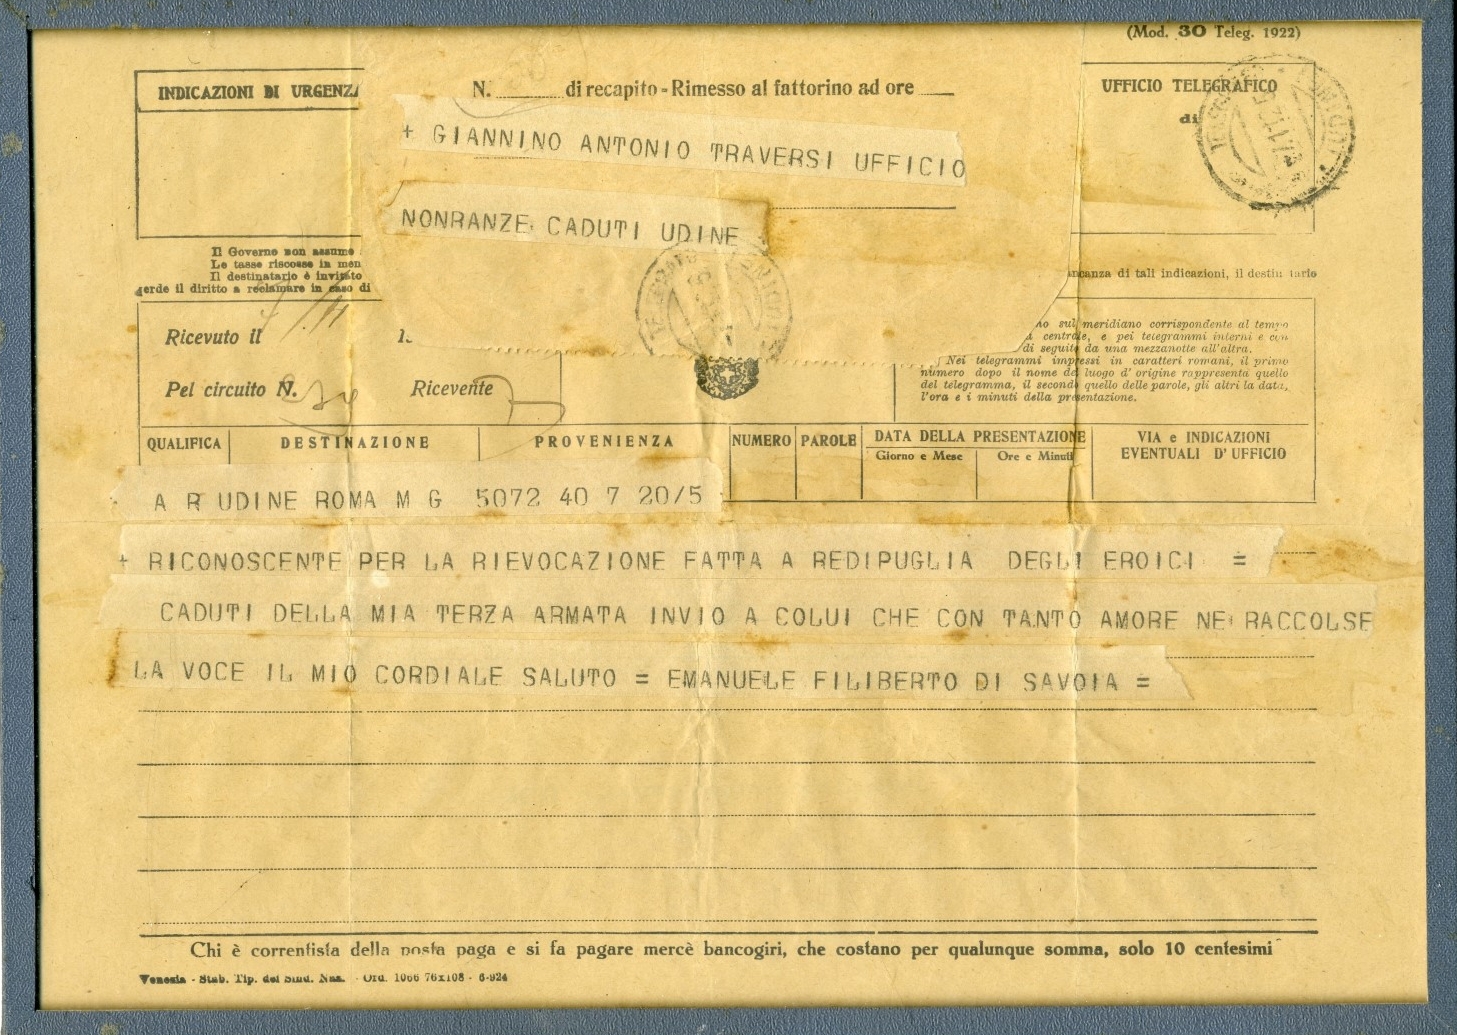 (Mod. 30 Teleg. 1922)
INDICAZIONI DI URGENZA
N. di recapito - Rimesso al fattorino ad ore
UFFICIO TELEGRAFICO
di
+ GIANNINO ANTONIO TRAVERSI UFFICIO
NONRANZE CADUTI UDINE
Il Governo non assume
Le tasse riscosse in men
Il destinatario è invitato
perde il diritto a reclamare in caso di
ancanza di tali indicazioni, il destinatario
Ricevuto il 7/11
Pel circuito N. Ricevente
no sul meridiano corrispondente al tempo
a centrale, e pei telegrammi interni e con
di seguito da una mezzanotte all'altra.
Nei telegrammi impressi in caratteri romani, il primo
numero dopo il nome del luogo d'origine rappresenta quello
del telegramma, il secondo quello delle parole, gli altri la data,
l'ora e i minuti della presentazione.
QUALIFICA DESTINAZIONE PROVENIENZA NUMERO PAROLE DATA DELLA PRESENTAZIONE VIA e INDICAZIONI
Giorno e Mese Ore e Minuti EVENTUALI D'UFFICIO
A R UDINE ROMA M G 5072 40 7 20/5
+ RICONOSCENTE PER LA RIEVOCAZIONE FATTA A REDIPUGLIA DEGLI EROICI =
CADUTI DELLA MIA TERZA ARMATA INVIO A COLUI CHE CON TANTO AMORE NE RACCOLSE
LA VOCE IL MIO CORDIALE SALUTO = EMANUELE FILIBERTO DI SAVOIA =
Chi è correntista della posta paga e si fa pagare mercè bancogiri, che costano per qualunque somma, solo 10 centesimi
Venezia - Stab. Tip. del Sind. Naz. - Ord. 1066 76x108 - 6-924